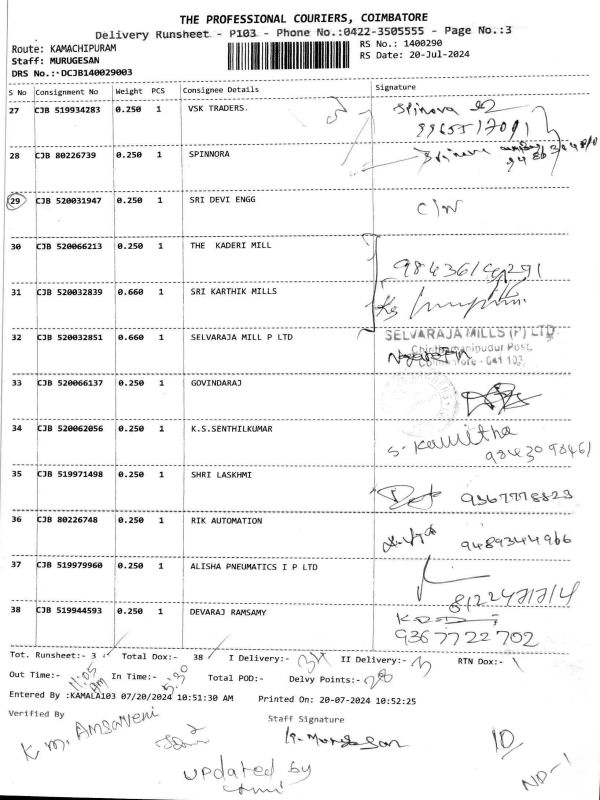 THE PROFESSIONAL COURIERS, COIMBATORE
Delivery Runsheet - P103 - Phone No.:0422-3505555 - Page No.:3
Route: KAMACHIPURAM
RS No.: 1400290
Staff: MURUGESAN
RS Date: 20-Jul-2024
DRS No.: DCJB140029003
S No Consignment No Weight PCS Consignee Details Signature
27 CJB 519934283 0.250 1 VSK TRADERS. Spinova
28 CJB 80226739 0.250 1 SPINNORA
29 CJB 520031947 0.250 1 SRI DEVI ENGG C/W
30 CJB 520066213 0.250 1 THE KADERI MILL
31 CJB 520032839 0.660 1 SRI KARTHIK MILLS
32 CJB 520032851 0.660 1 SELVARAJA MILL P LTD SELVARAJA MILLS (P) LTD
Chinthamanipudur Post,
Coimbatore - 641 103.
33 CJB 520066137 0.250 1 GOVINDARAJ
34 CJB 520062056 0.250 1 K.S.SENTHILKUMAR S. Kavitha
9843098461
35 CJB 519971498 0.250 1 SHRI LASKHMI 9367778823
36 CJB 80226748 0.250 1 RIK AUTOMATION 9489344966
37 CJB 519979960 0.250 1 ALISHA PNEUMATICS I P LTD
38 CJB 519944593 0.250 1 DEVARAJ RAMSAMY
9367722702
Tot. Runsheet:- 3 Total Dox:- 38 I Delivery:- II Delivery:- 3 RTN Dox:- 1
Out Time:- 11:05 AM In Time:- 5:30 Total POD:- Delvy Points:- 28
Entered By :KAMALA103 07/20/2024 10:51:30 AM Printed On: 20-07-2024 10:52:25
Verified By Staff Signature
K. M. Amsaveni
10
updated by
ND-1